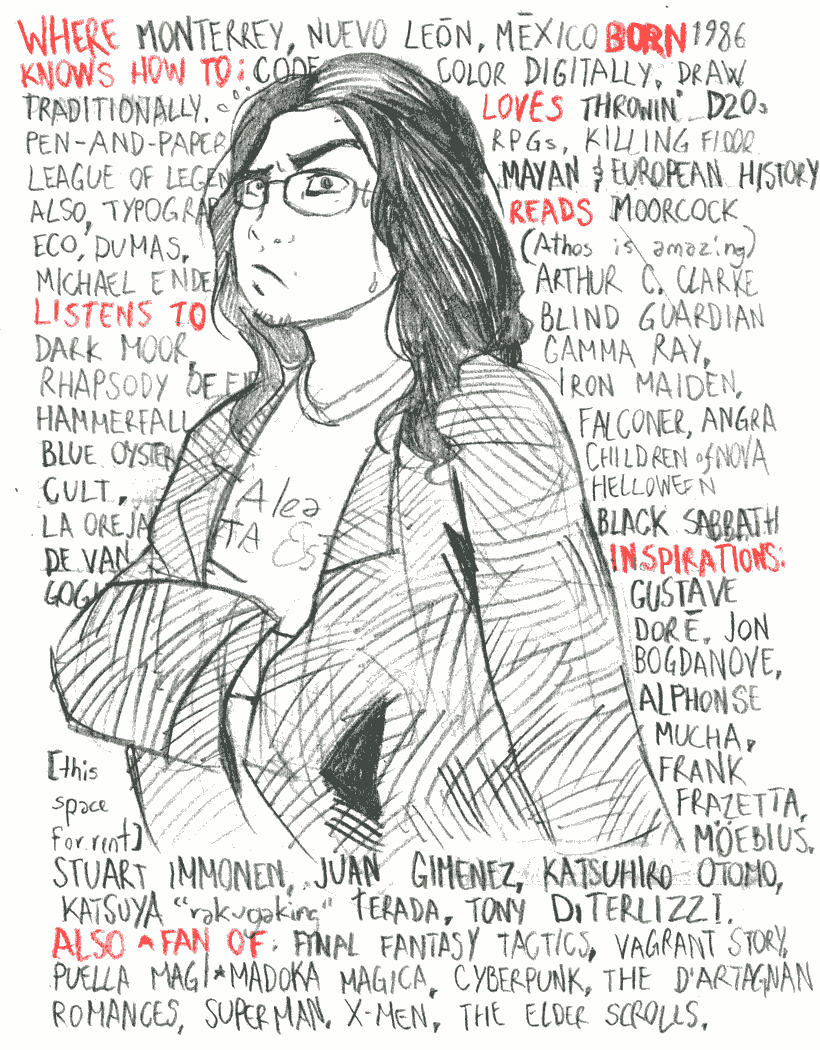 WHERE MONTERREY, NUEVO LEŌN, MĒXICO BORN 1986
KNOWS HOW TO: CODE COLOR DIGITALLY, DRAW
TRADITIONALLY. LOVES THROWIN' D20s
PEN-AND-PAPER RPGs, KILLING FLOOR
LEAGUE OF LEGEN MAYAN & EUROPEAN HISTORY
ALSO, TYPOGRAP READS MOORCOCK
ECO, DUMAS, (Athos is amazing)
MICHAEL ENDE ARTHUR C. CLARKE
LISTENS TO BLIND GUARDIAN
DARK MOOR, GAMMA RAY,
RHAPSODY OF FI IRON MAIDEN,
HAMMERFALL FALCONER, ANGRA
BLUE OYSTER CHILDREN of NOVA
CULT, HELLOWEEN
Alea
LA OREJA BLACK SABBATH
TA Est
DE VAN INSPIRATIONS:
GOGH GUSTAVE
DORĒ, JON
BOGDANOVE,
ALPHONSE
MUCHA,
[this FRANK
space FRAZETTA,
for rent] MÖEBIUS,
STUART IMMONEN, JUAN GIMENEZ, KATSUHIRO OTOMO,
KATSUYA "rakugaking" TERADA, TONY DiTERLIZZI.
ALSO A FAN OF: FINAL FANTASY TACTICS, VAGRANT STORY,
PUELLA MAGI★MADOKA MAGICA, CYBERPUNK, THE D'ARTAGNAN
ROMANCES, SUPERMAN, X-MEN, THE ELDER SCROLLS,